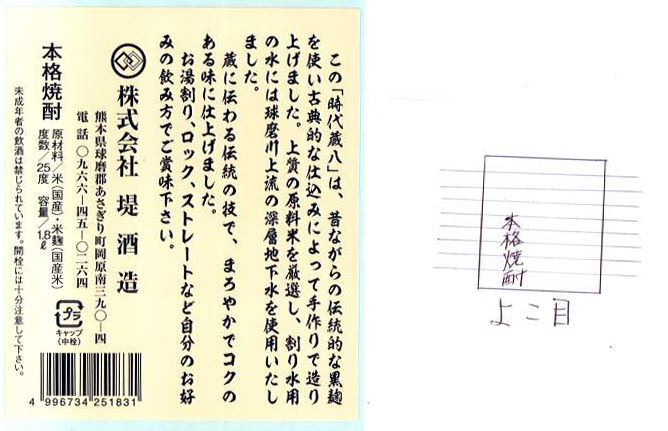 この「時代蔵八」は、昔ながらの伝統的な黒麹
を使い古典的な仕込みによって手作りで造り
上げました。上質の原料米を厳選し、割り水用
の水には球磨川上流の深層地下水を使用いたし
ました。
蔵に伝わる伝統の技で、まろやかでコクの
ある味に仕上げました。
お湯割り、ロック、ストレートなど自分のお好
みの飲み方でご賞味下さい。
株式会社 堤酒造
熊本県球磨郡あさぎり町岡原南三九〇ー四
電話 〇九六六ー四五ー〇二六四
本格焼酎
原材料/米(国産)・米麹(国産米)
度数/25度 容量/1.8ℓ
未成年者の飲酒は禁じられています。開栓には十分注意して下さい。
プラ
キャップ
(中栓)
4 996734 251831
本格焼酎
よこ目